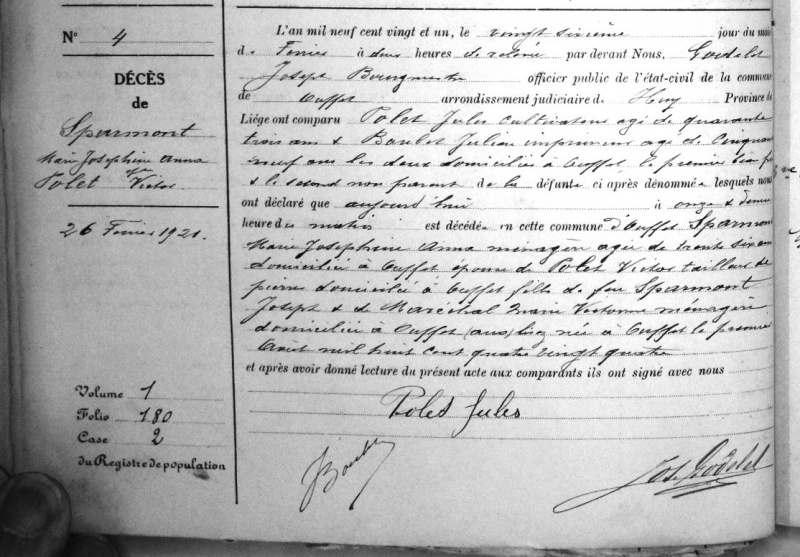 N° 4
DÉCÈS
de
Sparmont
Marie Joséphine Anna
épse
Polet Victor.
26 Février 1921.
Volume 1
Folio 180
Case 2
du Registre de population
L'an mil neuf cent vingt et un, le vingt sixième jour du mois
de Février à deux heures de relevée par devant Nous, Godelet
Joseph Bourgmestre officier public de l'état-civil de la commune
de Ouffet arrondissement judiciaire de Huy Province de
Liége ont comparu Polet Jules cultivateur agé de quarante
trois ans & Boubet Julien imprimeur agé de Cinquante
neuf ans les deux domiciliés à Ouffet, le premier
& le second non parent de la défunte ci après dénommée lesquels nous
ont déclaré que aujourd'hui à onze & demie
heures du matin est décédée en cette commune d'Ouffet Sparmont
Marie Joséphine Anna ménagère agée de trente six ans
domiciliée à Ouffet épouse de Polet Victor tailleur de
pierres domicilié à Ouffet fille de feu Sparmont
Joseph & de Maréchal Marie Victorine ménagère
domiciliée à Ouffet née à Ouffet le premier
Août mil huit cent quatre vingt quatre
et après avoir donné lecture du présent acte aux comparants ils ont signé avec nous
Polet Jules
Jos Godelet